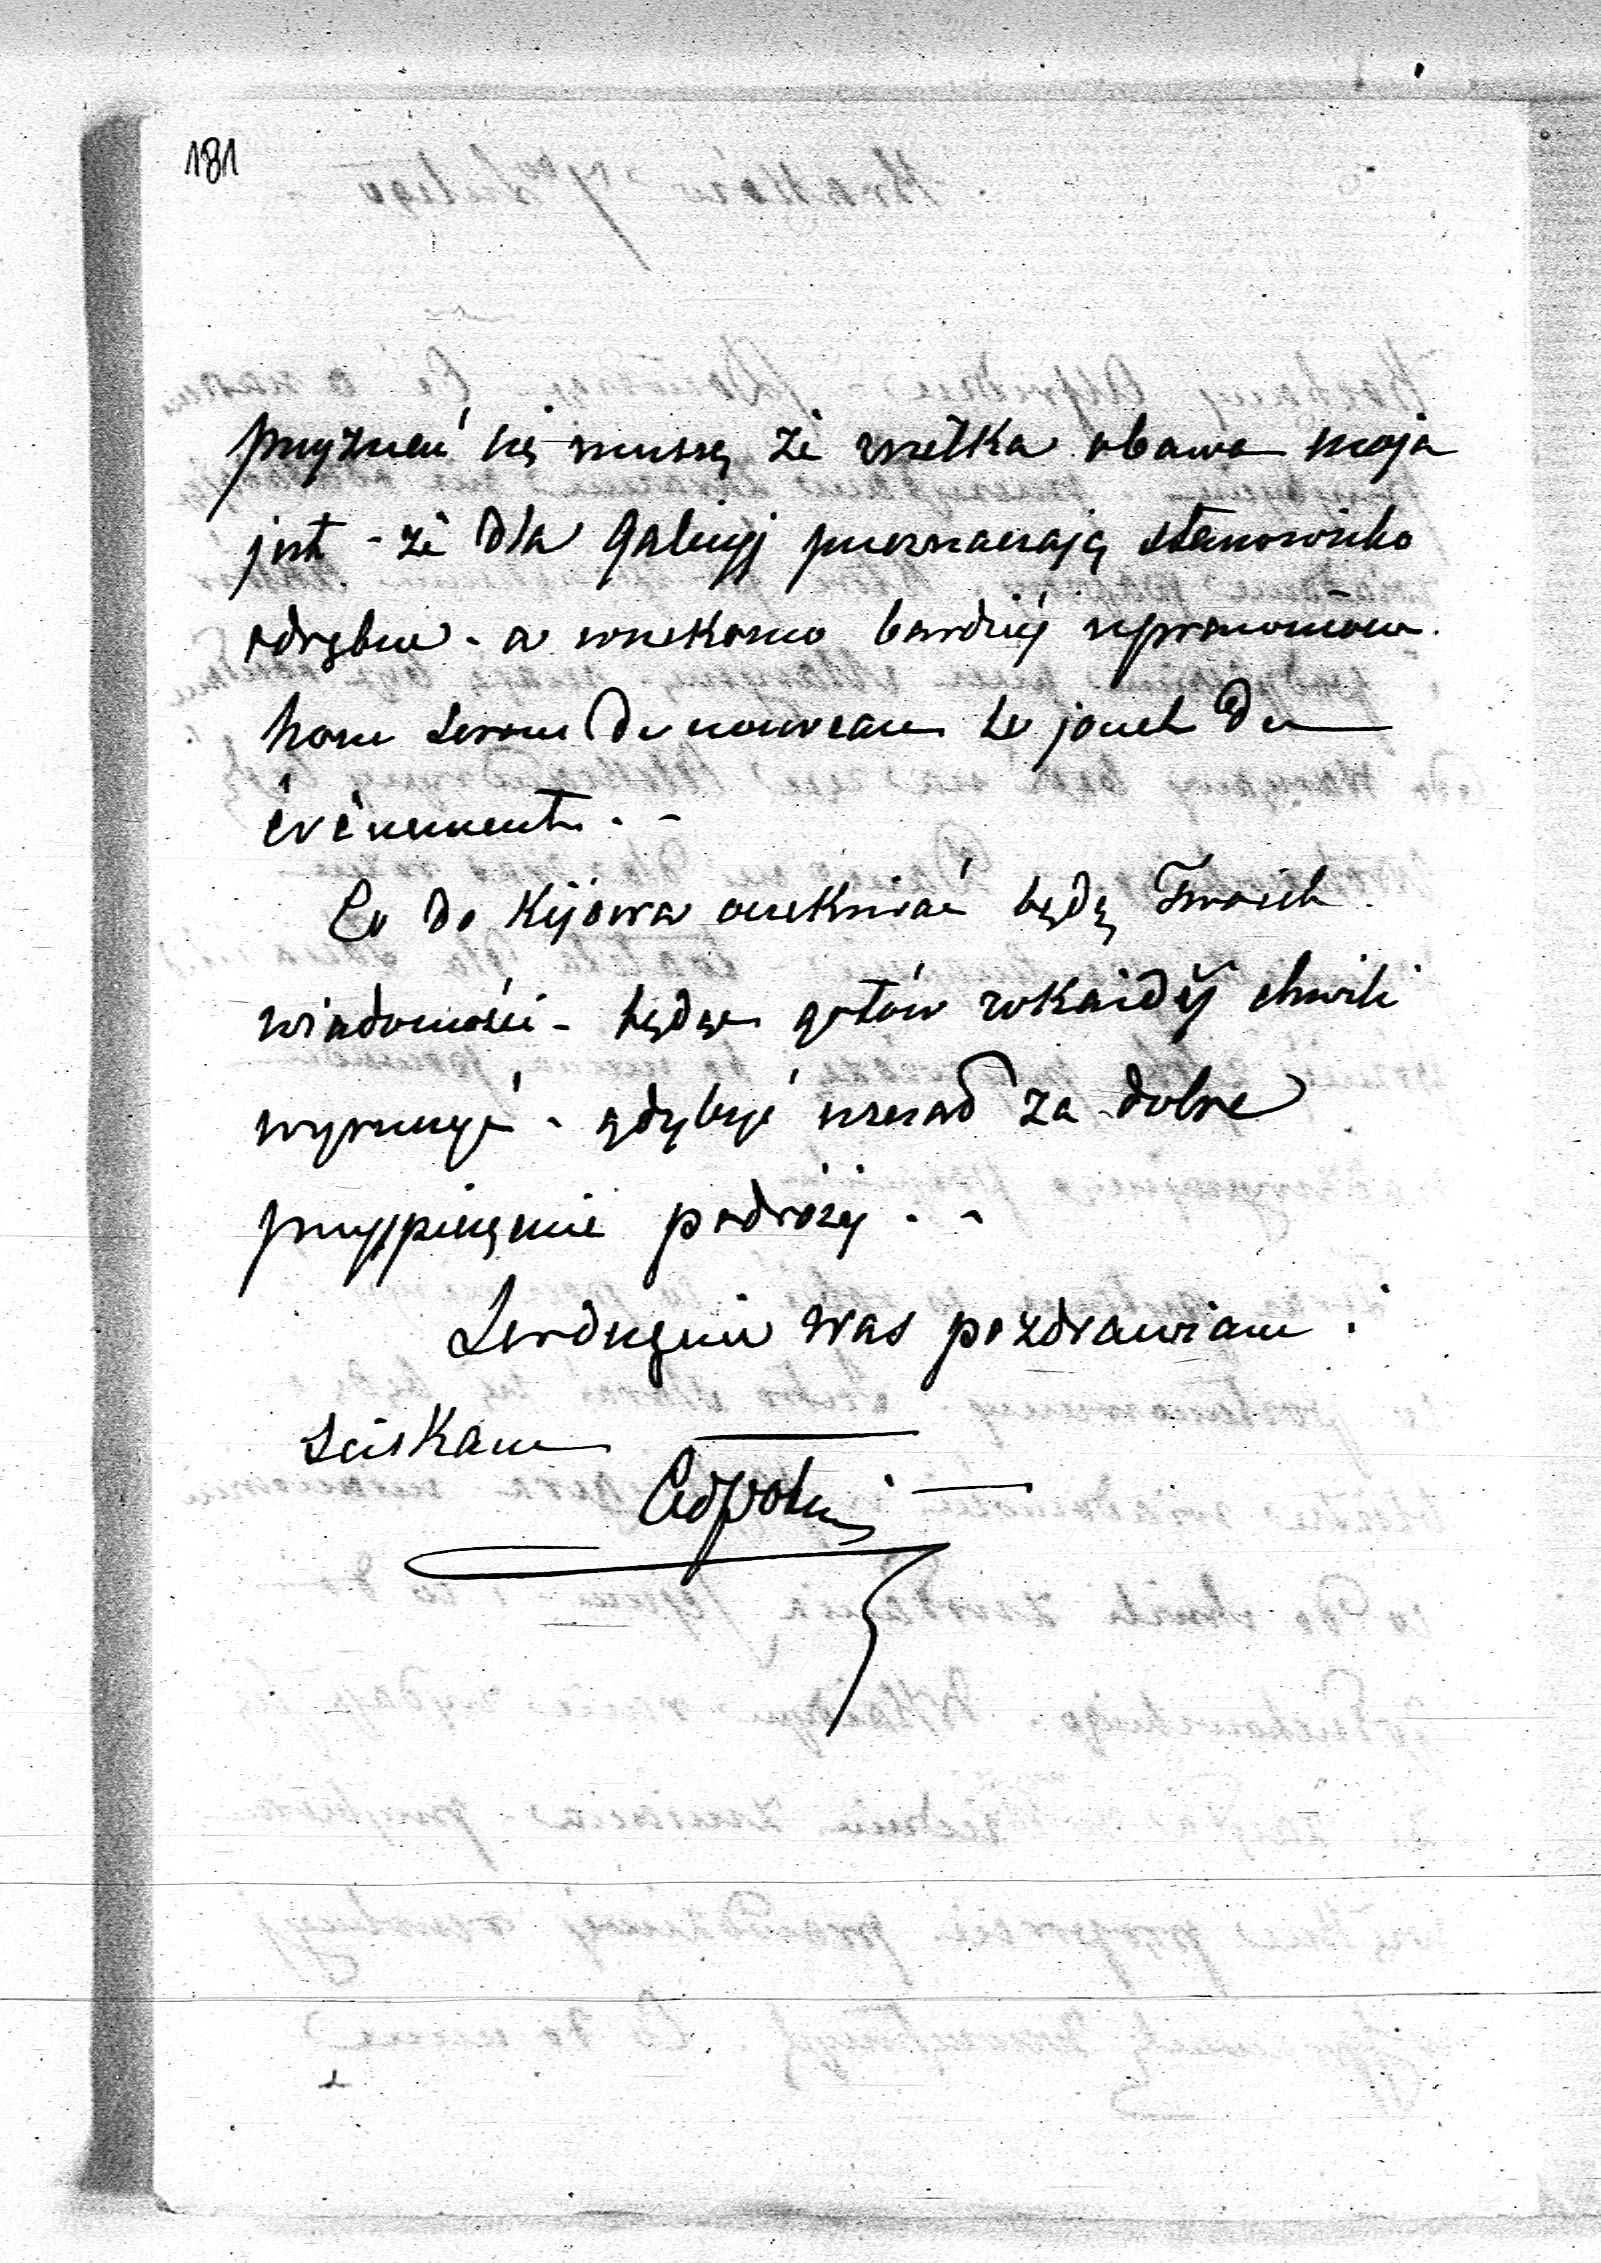 181
przyznać się muszę że wielka obawa moja
jest - że dla Galicyj przeznaczają stanowisko
odrębne - a rzekomo bardziej uprawnione
nous serons de nouveau le jouet des
évènements . -
Co do Kijowa oczekiwać będę Twoich
wiadomości - będąc gotów w każdéj chwili
wyruszyć - gdybyś uznał za dobre
przyspieszenie podróży . -
Serdecznie was pozdrawiam i
ściskam